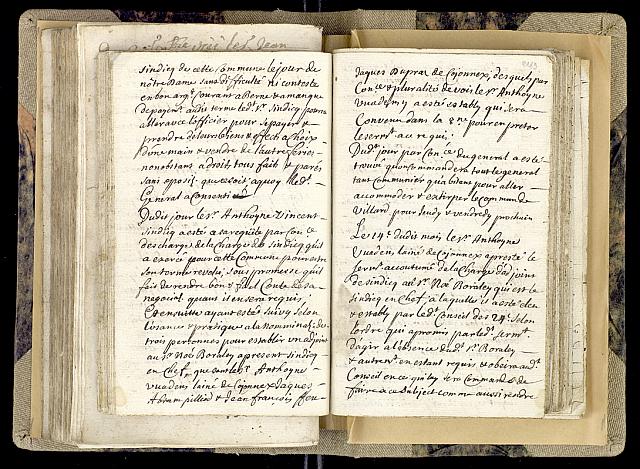 sindicq de cette Commune le jour de
nôtre Dame sans difficulté ni conteste
en bon argt Courant a Berne & a manque
de payer audit terme led. Sr. Sindicq pourra
aller avec l'officier pour se payer &
prendre de leurs biens & effects a choix
d'une main & vendre de l'autre
nonobstans a droit tous fait & parés
sans oposit. que ce soit aquoy led.
General a consenti
Dudit jour le Sr. Anthoyne Vincent
sindicq a esté a sa requite par Con.ce
descharge de la Charge de sindicq qu'il
a exercé pour cette Commune pour
son terme sous promesse qu'il
fait de rendre bon & fidel Conte de sa
negociat. quans il en sera requis
Et ensuitte ayant esté suivy selon
l'usance & pratique a la Nominat. de
trois personnes pour establir un adjoint
au Sr. Noé Boraley apresent sindicq
en Chef, que sont le Sr. Anthoyne
Vuadens l'aisné de Cojonnex Jaques
Abram pilliod & Jean françois
Jaques Dupraz de Cojonnex, desquels par
Con.ce & pluralité de voix le Sr. Anthoyne
Vuadens y a esté estably qui sera
Convenu dans la 8.ne pour en preter
le serm. ac requi.
Dud. jour par Con.ce du general a esté
trouvé que commander tout le general
tant Communier qu'abitant pour aller
accommoder & le commun de
Villard pour Jeudy & vendredy prochain
Le 14e. dudit mois le Sr. Anthoyne
Vuadens l'aisné de Cojonnex a presté le
Serm. accoutumé de la Charge d'adjoint
de sindicq au Sr. Noé Boraley qui est le
sindicq en Chef, a laquelle il a esté eleu
& estably par led. Conseil des 24. selon
l'ordre qui a promis par led. serm.
d'agir a l'absence dud. Sr. Boraley
& autrem. en estant requis & obeir aud.
Conseil en ce qui luy sera Commandé de
faire a ce subject comme aussi rendre